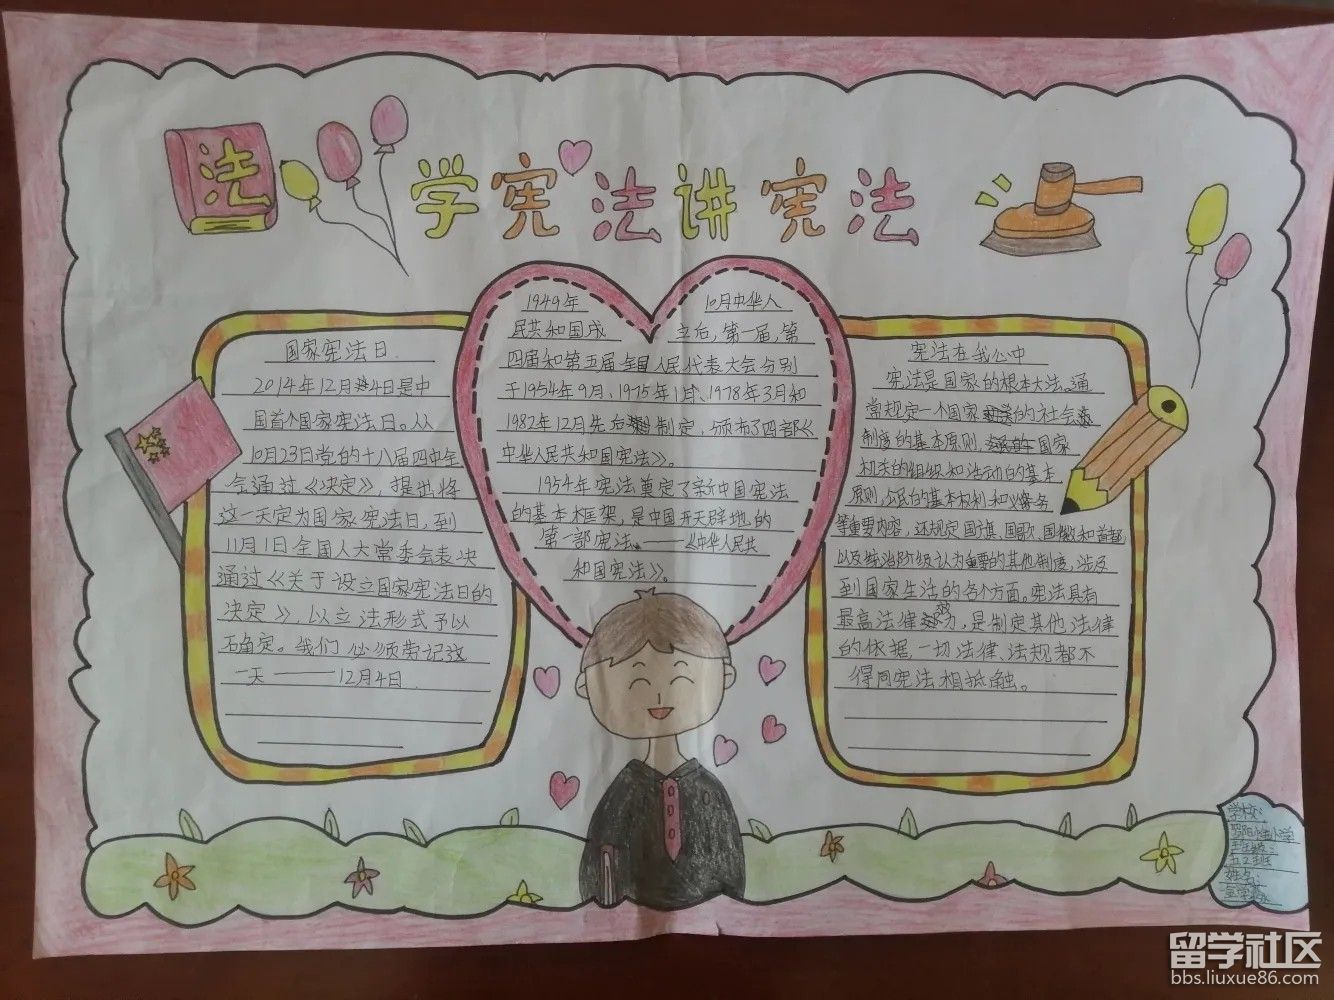 法
学宪法讲宪法
国家宪法日
2014年12月4日是中
国首个国家宪法日。从
10月23日党的十八届四中全
会通过《决定》，提出将
这一天定为国家宪法日，到
11月1日全国人大常委会表决
通过《关于设立国家宪法日的
决定》，以立法形式予以
确定。我们必须劳记这
一天——12月4日.
1949年 10月中华人
民共和国成 立后，第一届，第
四届和第五届全国人民代表大会分别
于1954年9月、1975年1月、1978年3月和
1982年12月先后制定，颁布了四部《
中华人民共和国宪法》。
1954年宪法奠定了新中国宪法
的基本框架，是中国开天辟地的
第一部宪法.——《中华人民共
和国宪法》。
宪法在我心中
宪法是国家的根本大法。通
常规定一个国家的社会
制度的基本原则，国家
机关的组织和活动的基本
原则，的基本权利和义务
等重要内容，还规定国旗、国歌、国徽和首都
以及统治阶级认为重要的其他制度，涉及
到国家生活的各个方面。宪法具有
最高法律效力，是制定其他法律
的依据，一切法律、法规都不
得同宪法相抵触。
学校：
小学
班级：
五2班
姓名：
留学社区
bbs.liuxue86.com